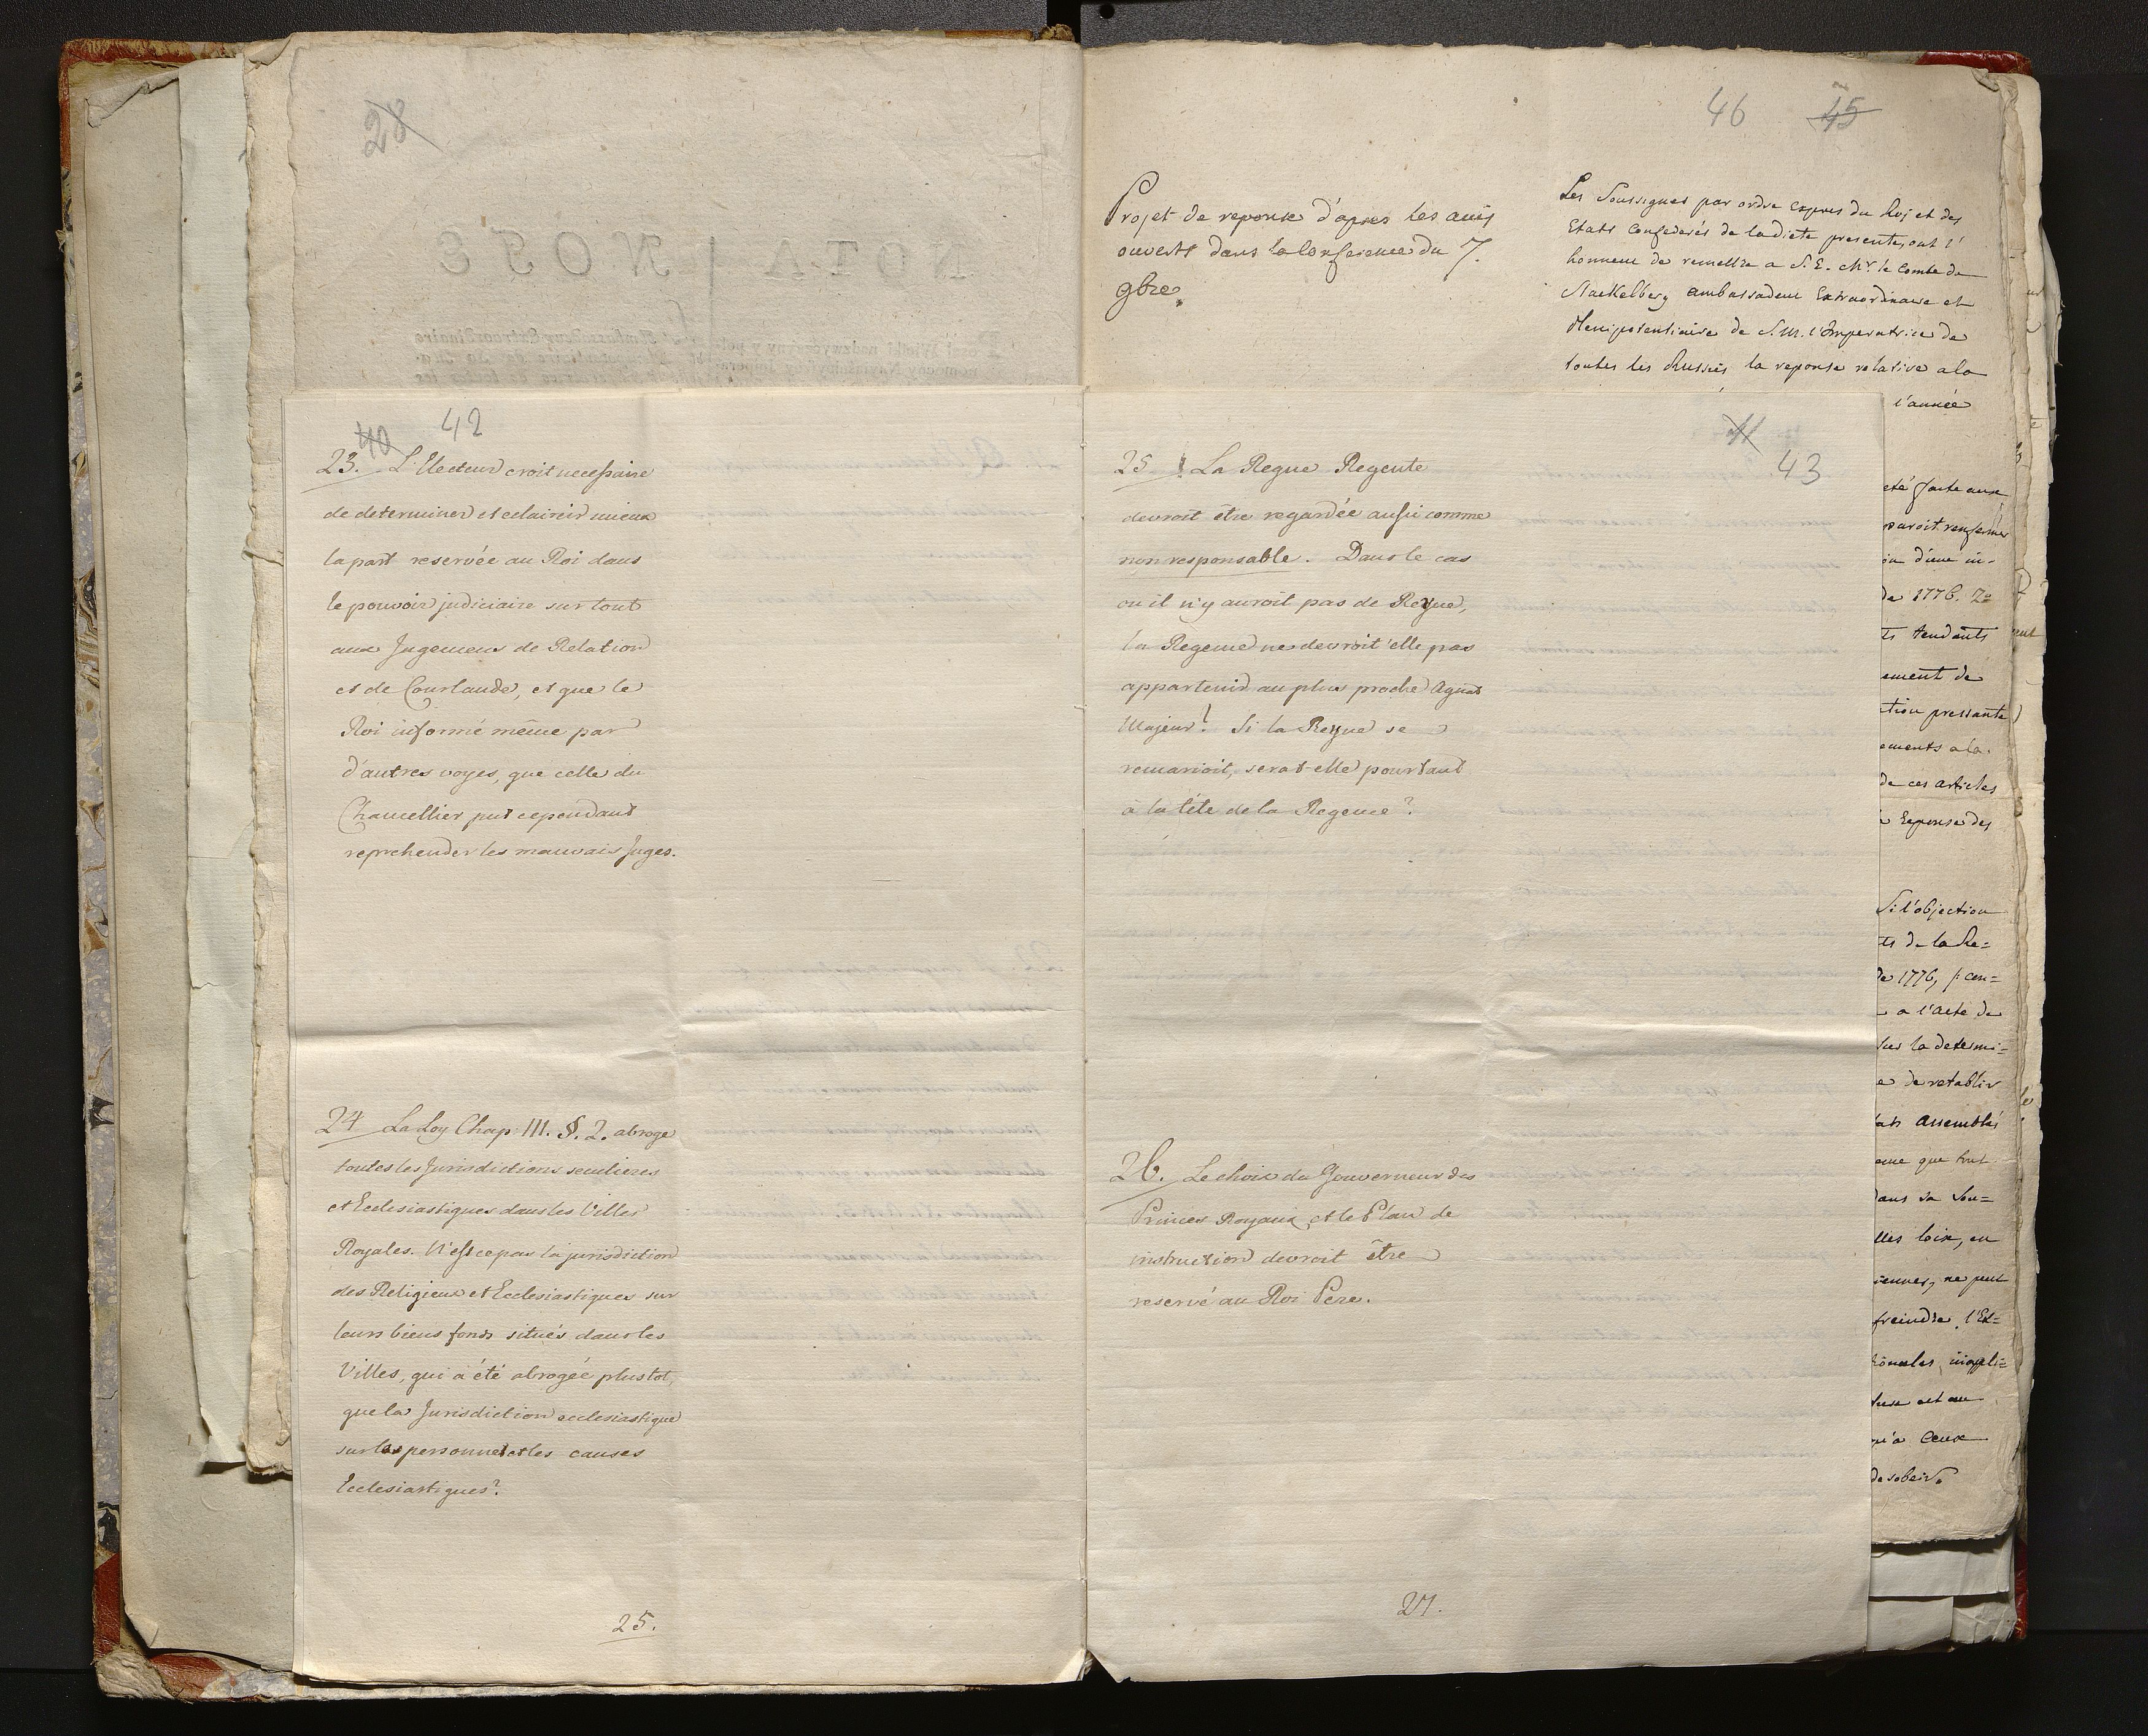 28
46 45
Projet de reponse d'apres les avis
ouverts dans la Conference du 7.
9bre.
Les Soussignés par ordre expres du Roj et des
Etats Confederés de la diete presente, ont l'
honneur de remettre a S. E. Mr. le Comte de
Stackelberg Ambassadeur Extraordinaire et
Plenipotentiaire de S. M. l'Imperatrice de
toutes les Russies, la reponse relative a la
l'année
eté faite aux
paroit renfermer
d'une in-
de 1776. 2=
ts tendants
ement de
tion pressante
ements a la
de ces articles
Reponse des
Si l'objection
ts de la Re=
de 1776, /: con=
a l'Acte de
la determi=
de retablir
ats Assemblés
que tout
dans sa Sou=
lles loix, en
iennes, ne peut
freindre. l'Ex=
appli=
act au
qu'a Ceux
desobeir.
NOTA NOTE
40 42
23. L'Electeur croit necessaire
de determiner et eclaircir mieux
la part reservée au Roi dans
le pouvoir judiciaire sur tout
aux Jugemens de Relation
et de Courlande, et que le
Roi informé même par
d'autres voyes, que celle du
Chancellier put cependant
reprehender les mauvais Juges.
24 La Loy Chap. III. §. 2. abroge
toutes les Jurisdictions seculieres
et Ecclesiastiques dans les Villes
Royales. N'est ce pas la jurisdiction
des Religieux et Ecclesiastiques sur
leurs biens fonds situés dans les
Villes, qui a été abrogée plustot,
que la Jurisdiction ecclesiastique
sur les personnes et les causes
Ecclesiastiques?
25.
41
43
25 La Regne Regente
devroit être regardée aussi comme
non responsable. Dans le cas
ou il n'y auroit pas de Reyne,
la Regence ne devroit'elle pas
appartenir au plus proche Agnat
Majeur? Si la Reyne se
remarioit, serat-elle pourtant
à la tête de la Regence?
26. Le choix du Gouverneur des
Princes Royaux, et le Plan de
instruction devroit être
reservé au Roi Pere.
27.